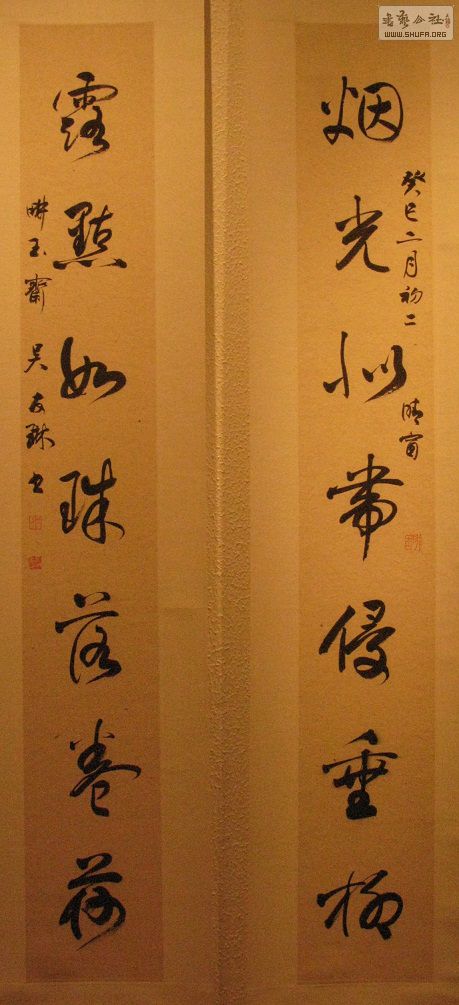 烟光似带侵垂柳
癸巳二月初二
晴窗
露點如珠落卷荷
畊玉齋
吴友琳书
書藝公社
WWW.SHUFA.ORG